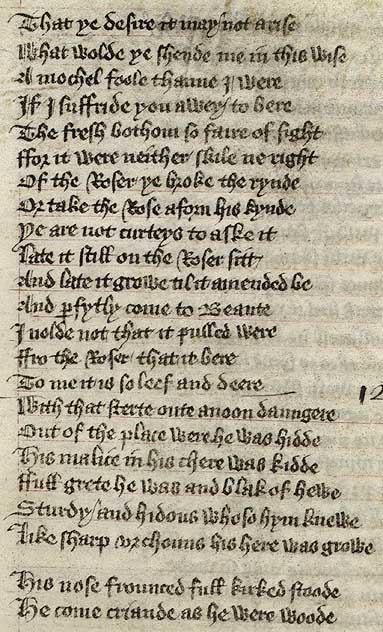 That ye desire it may not arise
What wolde ye shende me in this wise
A mochel foole thanne I were
If I suffride you awey to bere
The fresh bothoun so faire of sight
ffor it were neither skile ne right
Of the Roser ye broke the rynde
Or take the Rose aforn his kynde
Ye are not curteys to aske it
Late it still on the Roser sitt
And late it growe til it amended be
And pfytly come to Beaute
I nolde not that it pulled were
ffro the Roser that it bere
To me it is so leef and deere
With that sterte oute anoon daungere
Out of the place were he was hidde
His malice in his chere was kidde
ffull grete he was and blak of hewe
Sturdy and hidous who so hym knewe
Like sharp vrchouns his here was growe
His nose frounced full kirked stoode
He come criande as he were woode
12